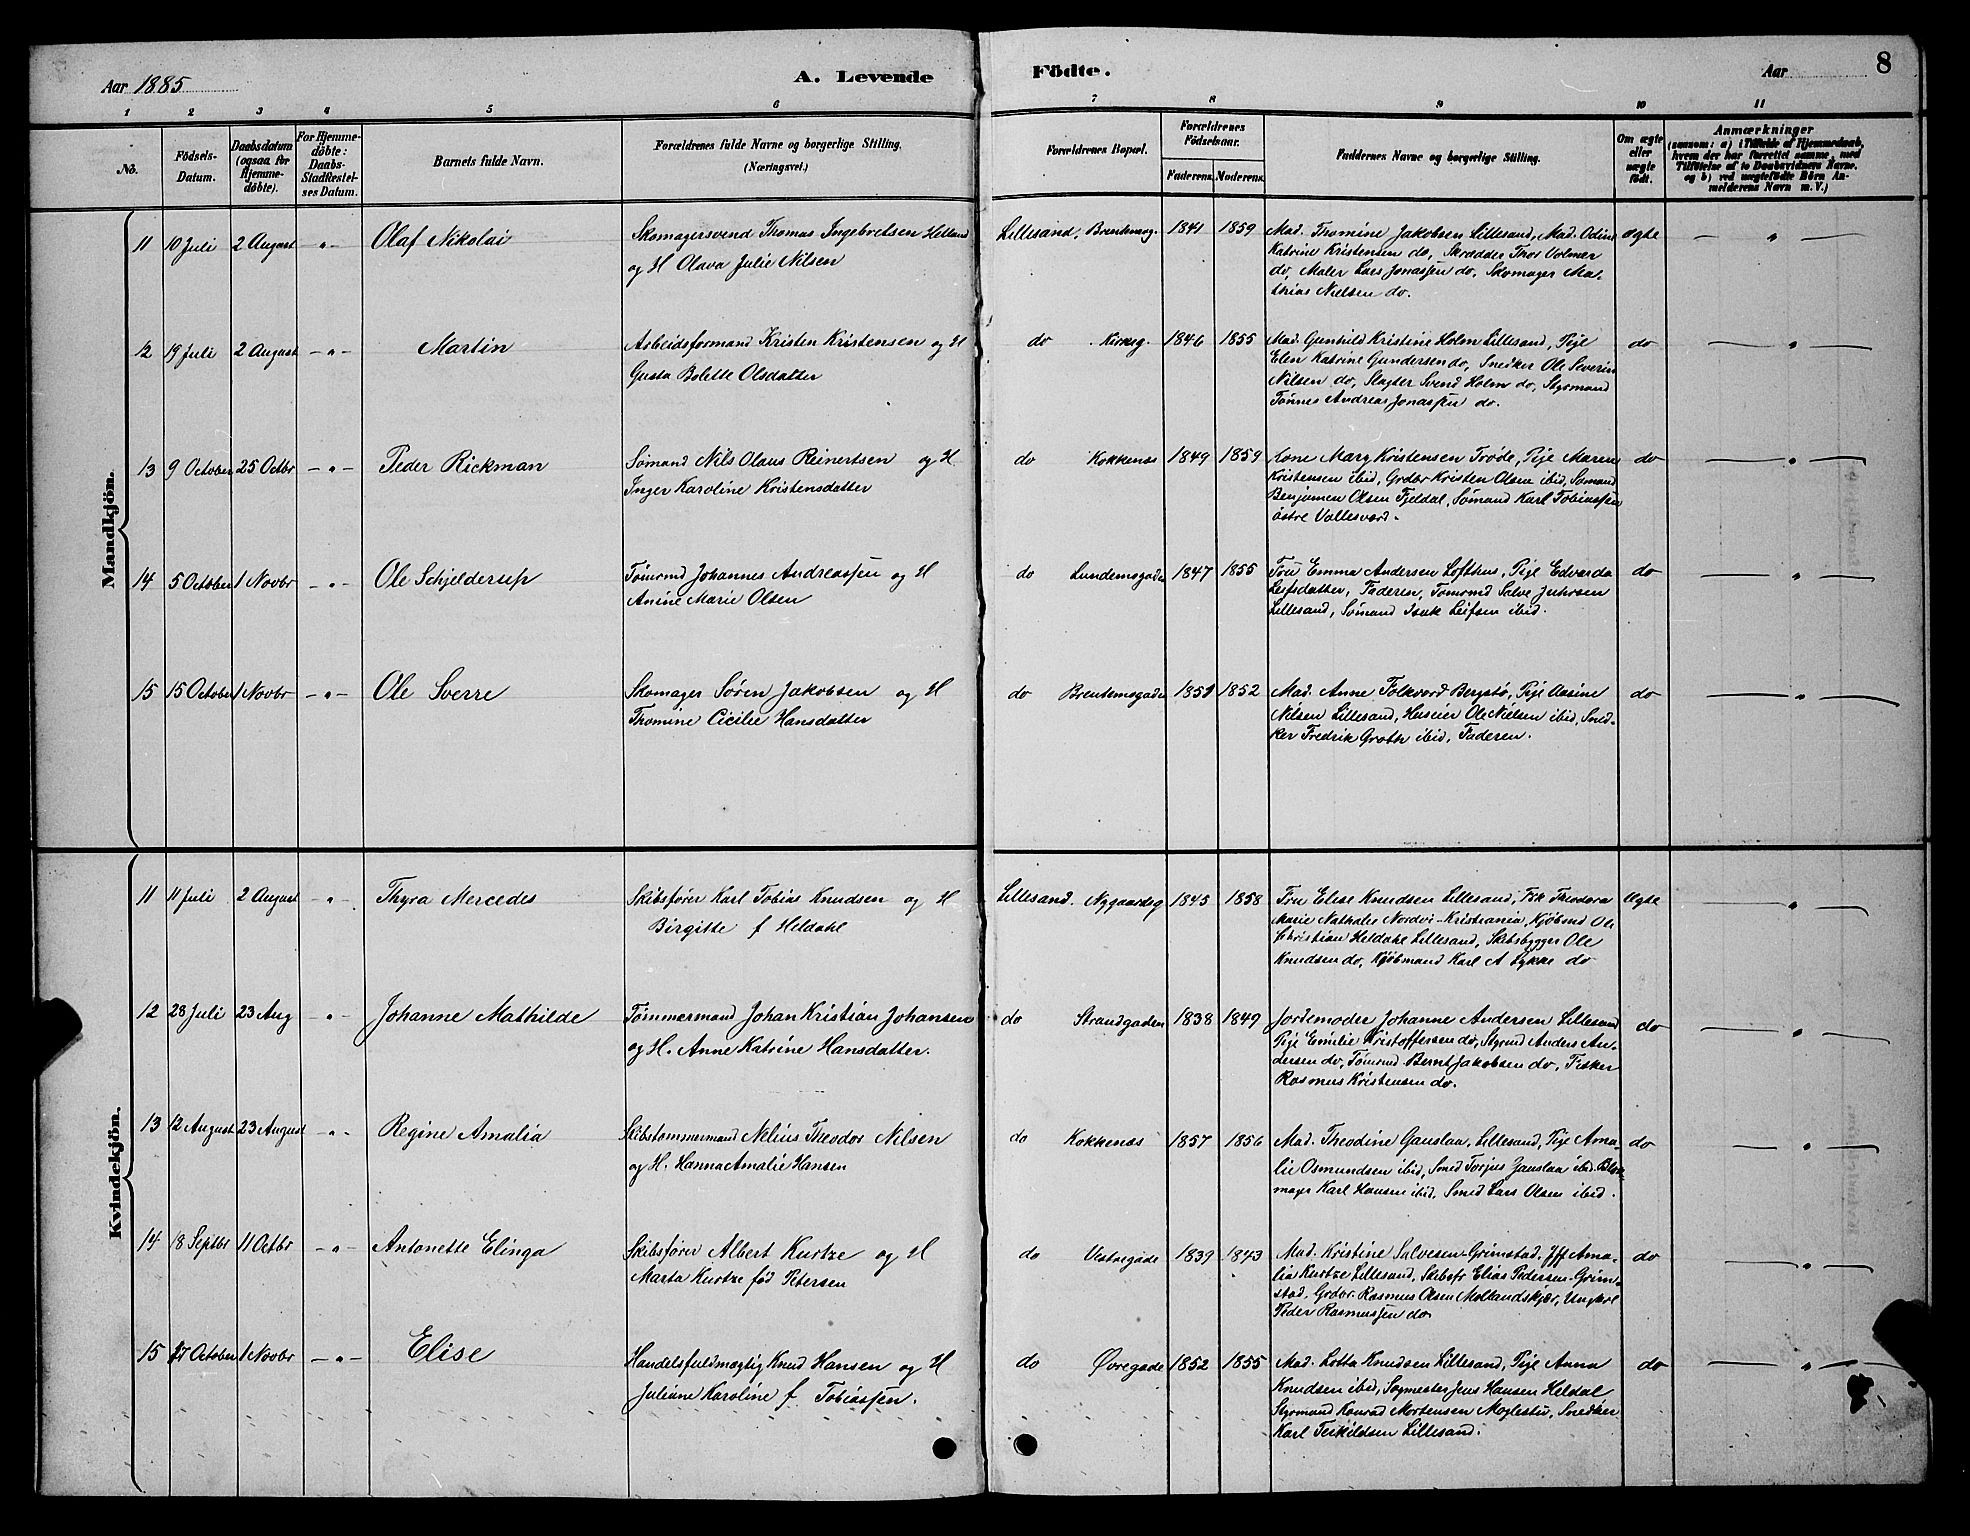 Aar 1885
A. Levende Födte.
Aar
8
1 2 3 4 5 6 7 8 9 10 11
No.
Födsels-Datum.
Daabsdatum (ogsaa for Hjemme-döbte).
For Hjemme-döbte: Daabs-Stadfæstel-ses Datum.
Barnets fulde Navn.
Forældrenes fulde Navne og borgerlige Stilling.
(Næringsvei.)
Forældrenes Bopæl.
Forældrenes Födselsaar.
Faderens. Moderens.
Faddernes Navne og borgerlige Stilling.
Om ægte eller uægte födt.
Anmærkninger
(saasom: a) i Tilfælde af Hjemmedaab, hvem der har forrettet samme, med Tilföielse af to Daabsvidners Navne. og b) ved uægtefödte Börn An-melderens Navn m. V.)
Mandkjön.
11 10 Juli 2 August -„- Olaf Nikolai
Skomagersvend Thomas Ingebretsen Helland
og H Olava Julie Nilsen
Lillesand, Brentemog. 1841 1859
Mad. Tromine Jakobsen Lillesand, Mad. Odine
Katrine Kristensen do, Skrædder Thor Volmer
do, Maler Lars Jonassen do, Skomager Ma-
thias Nielsen do.
ægte
12 19 Juli 2 August -„- Martin
Arbeidsformand Kristen Kristensen og H
Gusta Bolette Olsdatter
do Kirkeg. 1846 1855
Mad. Gunhild Kristine Holm Lillesand, Pige
Elen Katrine Gundersen do, Snedker Ole Severin
Nilsen do, Slagter Svend Holm do, Styrmand
Tönnes Andreas Jonassen do.
do
13 9 October 25 Octbr -„- Peder Rickman
Sømand Nils Olaus Reinertsen og H.
Inger Karoline Kristensdatter
do Kokkenæs 1849 1859
Kone Mary Kristensen Trøde, Pige Maren
Kristensen ibid, Grdbr Kristen Olsen ibid, Sømand
Benjamen Olsen Fjeldal, Sømand Karl Tobiassen
östre Vallesværd.
do
14 5 October 1 Novbr -„- Ole Schjelderup
Tømrmd Johannes Andreassen og H
Anine Marie Olsen
do Lundemogaden 1847 1855
Fru Emma Andersen Lofthus, Pige Edvarda
Leifsdatter, Faderen, Tømrmd Salve Juhrsen
Lillesand, Sømand Isak Leifsen ibid.
do
15 15 October 1 Novbr -„- Ole Sverre
Skomager Søren Jakobsen og H
Thomine Cicilie Hansdatter
do Brentemogaden 1851 1852
Mad. Anne Folkvord Bergstø, Pige Aasine
Nilsen Lillesand, Huseier Ole Nielsen ibid, Sned-
ker Fredrik Groth ibid, Faderen.
do
Kvindekjön.
11 11 Juli 2 August -„- Thyra Mercedes
Skibsfører Karl Tobias Knudsen og H
Birgitte f Heldahl
Lillesand. Nygaardsg 1845 1858
Fru Elise Knudsen Lillesand, Frk Theodora
Marie Nathalie Nordvi-Kristiania, Kjøbmd Ole
Christian Heldahl Lillesand, Skibsbygger Ole
Knudsen do, Kjøbmand Karl A Lykke do
Ægte
12 28 Juli 23 Aug -„- Johanne Mathilde
Tømmermand Johan Kristian Johansen
og H. Anne Katrine Hansdatter.
do Strandgaden 1838 1849
Jordemoder Johanne Andersen Lillesand
Pige Emilie Kristoffersen do, Styrmd Anders An-
dersen do, Tømrmd Bernt Jakobsen do, Fisker
Rasmus Kristensen do.
do
13 12 August 23 August -„- Regine Amalia
Skibstømmermand Nelius Theodor Nilsen
og H. Hanna Amalie Hansen
do Kokkenæs 1857 1856
Mad. Theodine Gauslaa, Lillesand, Pige Ama-
lie Osmundsen ibid, Smed Torjus Gauslaa ibid, Blok-
mager Karl Hansen ibid, Smed Lars Olsen ibid.
do
14 18 Septbr 11 Octbr -„- Antonette Elinga
Skibsfører Albert Kurtze og H
Marta Kurtze fød Petersen
do Vestregade 1839 1843
Mad. Kristine Salvesen-Grimstad, Jfr Ama-
lia Kurtze Lillesand, Skibsfr Elias Pedersen-Grim-
stad, Grdbr. Rasmus Olsen Mollandskjær, Ungkrl
Peder Rasmussen do
do
15 17 October 1 Novbr -„- Elise
Handelsfuldmægtig Knud Hansen og H
Juliane Karoline f Tobiassen.
do Øvregade 1852 1855
Mad. Lotta Knudsen Lillesand, Pige Anna
Knudsen ibid, Sogmester Jens Hansen Heldal
Styrmand Konrad Mortensen Moglestu, Snedker
Karl Terkildsen Lillesand.
do